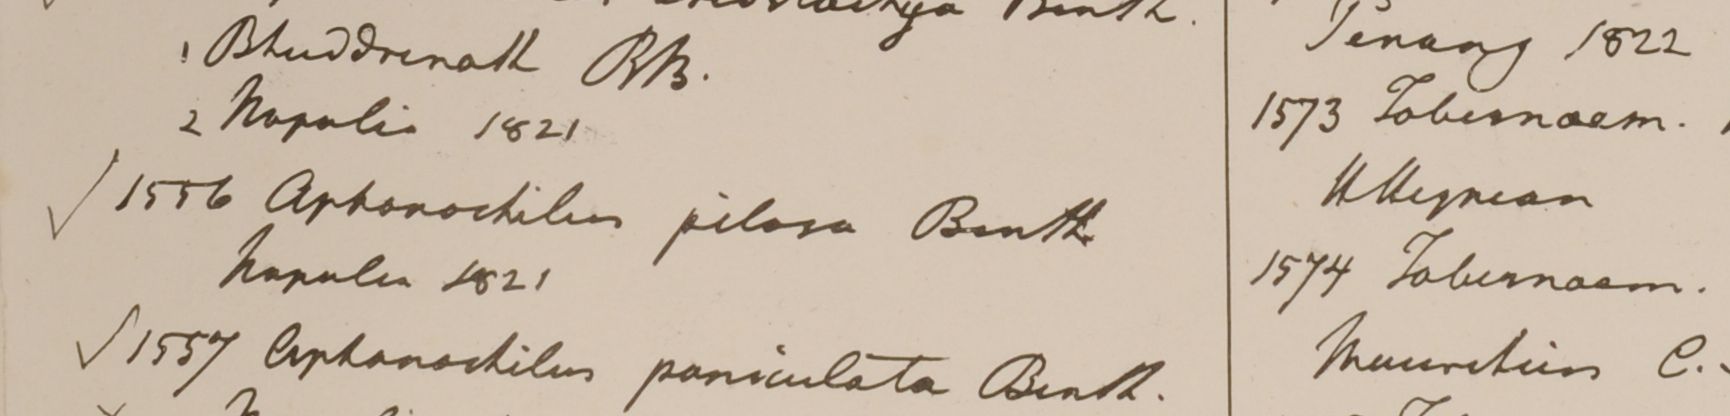 Benth.
1 Bhuddrenath RB.
2 Napalia 1821
1556 Aphanochilus pilosa Benth
Napalia 1821
1557 Aphanochilus paniculata Benth.
Penang 1822
1573 Tabernaem.
1574 Tabernaem.
Mauritius C.